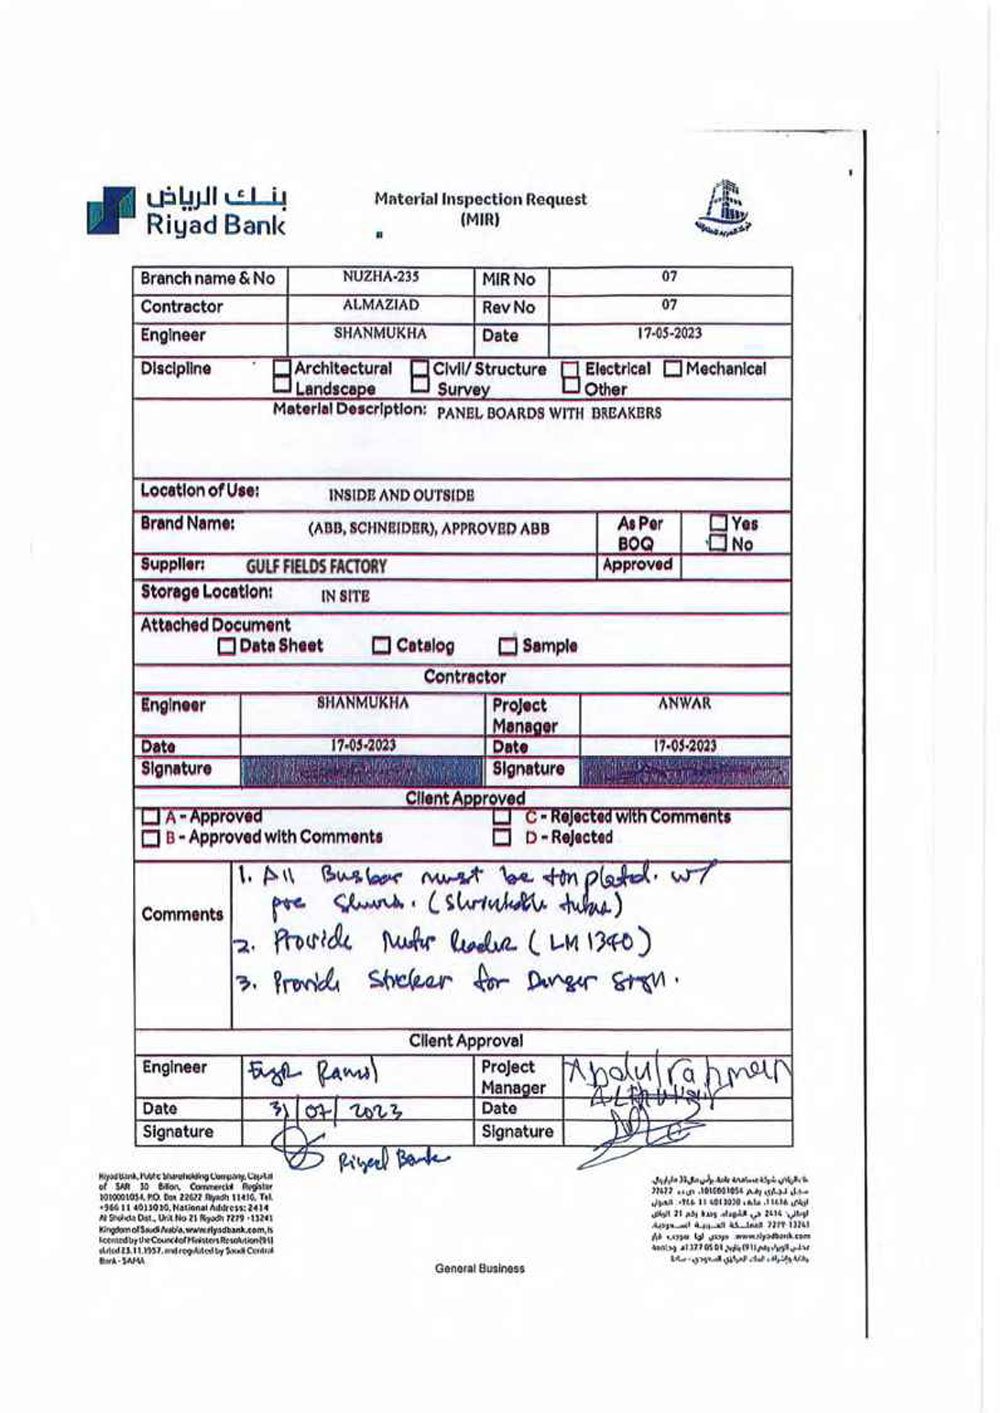 بنك الرياض
Riyad Bank
Material Inspection Request
(MIR)
Branch name & No NUZHA-235 MIR No 07
Contractor ALMAZIAD Rev No 07
Engineer SHANMUKHA Date 17-05-2023
Discipline Architectural Civil/ Structure Electrical Mechanical
Landscape Survey Other
Material Description: PANEL BOARDS WITH BREAKERS
Location of Use: INSIDE AND OUTSIDE
Brand Name: (ABB, SCHNEIDER), APPROVED ABB As Per BOQ Yes
No
Supplier: GULF FIELDS FACTORY Approved
Storage Location: IN SITE
Attached Document
Data Sheet Catalog Sample
Contractor
Engineer SHANMUKHA Project Manager ANWAR
Date 17-05-2023 Date 17-05-2023
Signature Signature
Client Approved
A - Approved C - Rejected with Comments
B - Approved with Comments D - Rejected
Comments
1. All Busbar must be
(Shrinkable tubes)
2. Provide Meter Reader (LM 1340)
3. Provide Sticker for Danger sign.
Client Approval
Engineer Project Manager Abdulrahman
Date 31/07/2023 Date
Signature Signature
Riyad Bank
Riyad Bank, Public Shareholding Company, Capital
of SAR 30 Billion, Commercial Register
1010001054, P.O. Box 22622 Riyadh 11416, Tel.
+966 11 4013030, National Address: 2414
Al Shohda Dist., Unit No 21 Riyadh 7279 - 13241
Kingdom of Saudi Arabia, www.riyadbank.com, is
licensed by the Council of Ministers Resolution (91)
dated 23.11.1957, and regulated by Saudi Central
Bank - SAMA
General Business